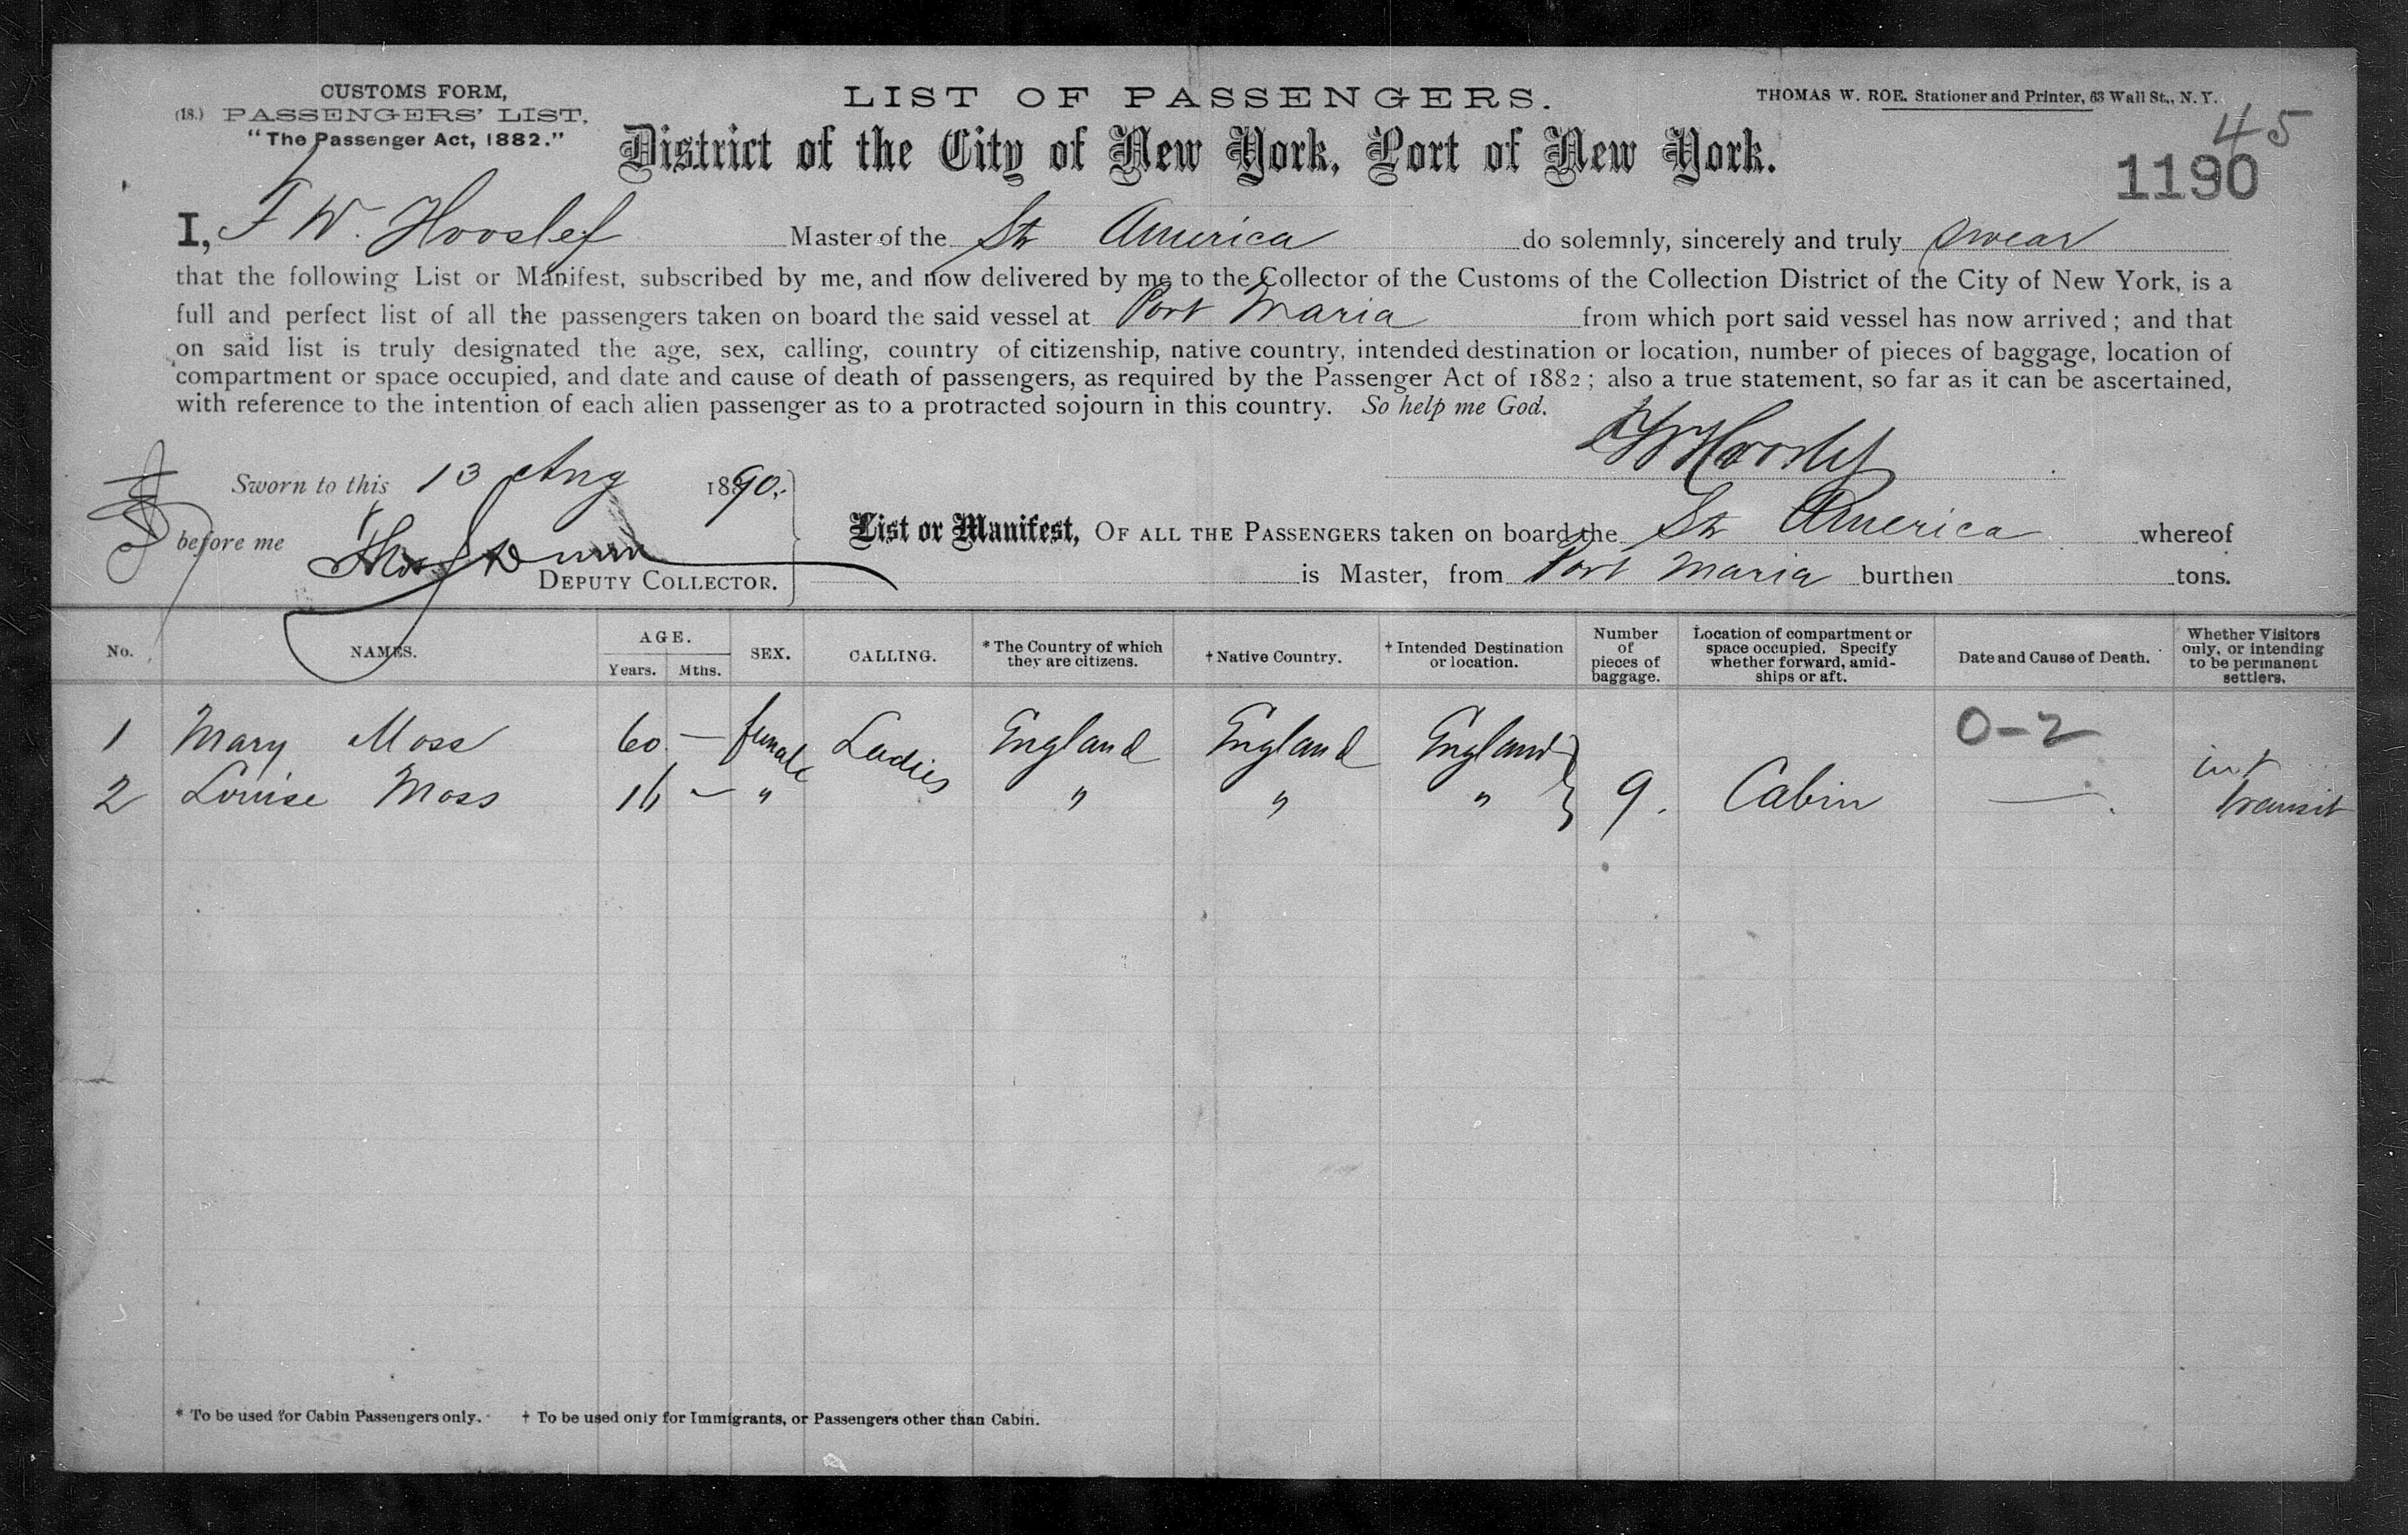 CUSTOMS FORM,
(18.) PASSENGERS' LIST,
"The Passenger Act, 1882."
LIST OF PASSENGERS.
THOMAS W. ROE. Stationer and Printer, 63 Wall St., N. Y.
45
District of the City of New York, Port of New York.
1190
I, F W. Master of the Str America do solemnly, sincerely and truly swear
that the following List or Manifest, subscribed by me, and now delivered by me to the Collector of the Customs of the Collection District of the City of New York, is a
full and perfect list of all the passengers taken on board the said vessel at Port Maria from which port said vessel has now arrived; and that
on said list is truly designated the age, sex, calling, country of citizenship, native country, intended destination or location, number of pieces of baggage, location of
compartment or space occupied, and date and cause of death of passengers, as required by the Passenger Act of 1882; also a true statement, so far as it can be ascertained,
with reference to the intention of each alien passenger as to a protracted sojourn in this country. So help me God.
Sworn to this 13 Aug 1890.
before me
DEPUTY COLLECTOR.
List or Manifest, OF ALL THE PASSENGERS taken on board the Str America whereof
is Master, from Port Maria burthen tons.
No. NAMES. AGE. Years. Mths. SEX. CALLING. * The Country of which they are citizens. † Native Country. † Intended Destination or location. Number of pieces of baggage. Location of compartment or space occupied. Specify whether forward, amid-ships or aft. Date and Cause of Death. Whether Visitors only, or intending to be permanent settlers.
0-2
1 Mary Moss 60 — female Ladies England England England
2 Louise Moss 16 — " " " " 9. Cabin — int transit
* To be used for Cabin Passengers only. † To be used only for Immigrants, or Passengers other than Cabin.